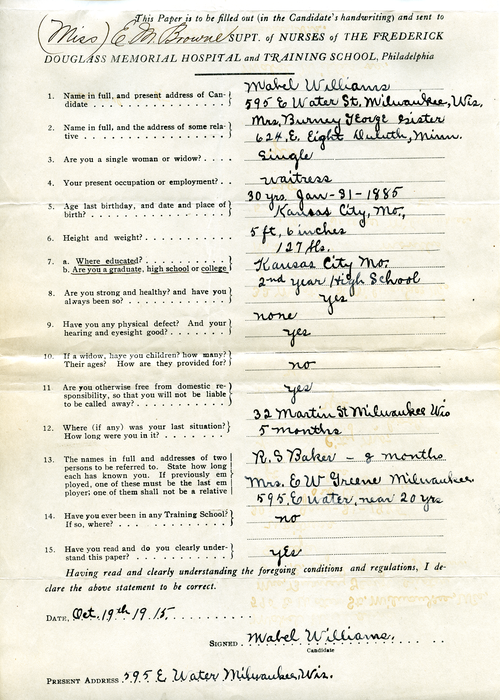 This Paper is to be filled out (in the Candidate's handwriting) and sent to
(Miss) E M Browne SUPT. of NURSES of THE FREDERICK
DOUGLASS MEMORIAL HOSPITAL and TRAINING SCHOOL, Philadelphia
1. Name in full, and present address of Can- Mabel Williams
didate . . . . . . . . . . . . . . . . 595 E Water St, Milwaukee, Wis.
2. Name in full, and the address of some rela- Mrs. Burney George sister
tive . . . . . . . . . . . . . . . . 624, E. Eight Duluth, Minn.
3. Are you a single woman or widow? . . . . Single
4. Your present occupation or employment? . . . waitress
5. Age last birthday, and date and place of 30 yrs. Jan-31-1885
birth? . . . . . . . . . . . . . . . . Kansas City, Mo.,
6. Height and weight? . . . . . . . . . . . 5 ft, 6 inches
127 lbs.
7. a. Where educated? . . . . . . . . . . . Kansas City Mo.
b. Are you a graduate, high school or college 2nd year High School
8. Are you strong and healthy? and have you
always been so? . . . . . . . . . . . yes
9. Have you any physical defect? And your none
hearing and eyesight good? . . . . . . . yes
10. If a widow, have you children? how many?
Their ages? How are they provided for? no
11. Are you otherwise free from domestic re- yes
sponsibility, so that you will not be liable
to be called away? . . . . . . . . . . .
12. Where (if any) was your last situation? 32 Martin St Milwaukee Wis
How long were you in it? . . . . . . . 5 months
13. The names in full and addresses of two
persons to be referred to. State how long R. S Baker - 8 months
each has known you. If previously em
ployed, one of these must be the last em Mrs. E W Greene Milwaukee
ployer; one of them shall not be a relative 595, E Water, near 20 yrs
14. Have you ever been in any Training School? no
If so, where? . . . . . . . . . . . . .
15. Have you read and do you clearly under-
stand this paper? . . . . . . . . . . . yes
Having read and clearly understanding the foregoing conditions and regulations, I de-
clare the above statement to be correct.
DATE, Oct. 19th 1915.
SIGNED Mabel Williams.
Candidate
PRESENT ADDRESS 595 E Water Milwaukee, Wis.